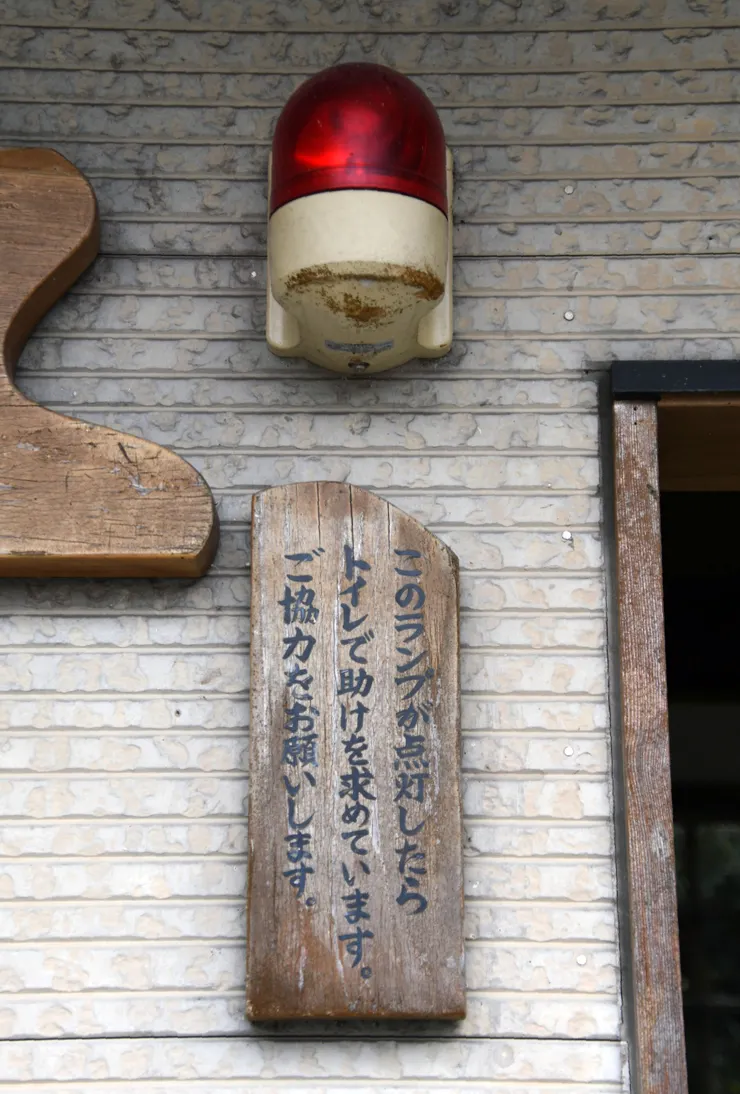 このランプが点灯したら
トイレで助けを求めています。
ご協力をお願いします。